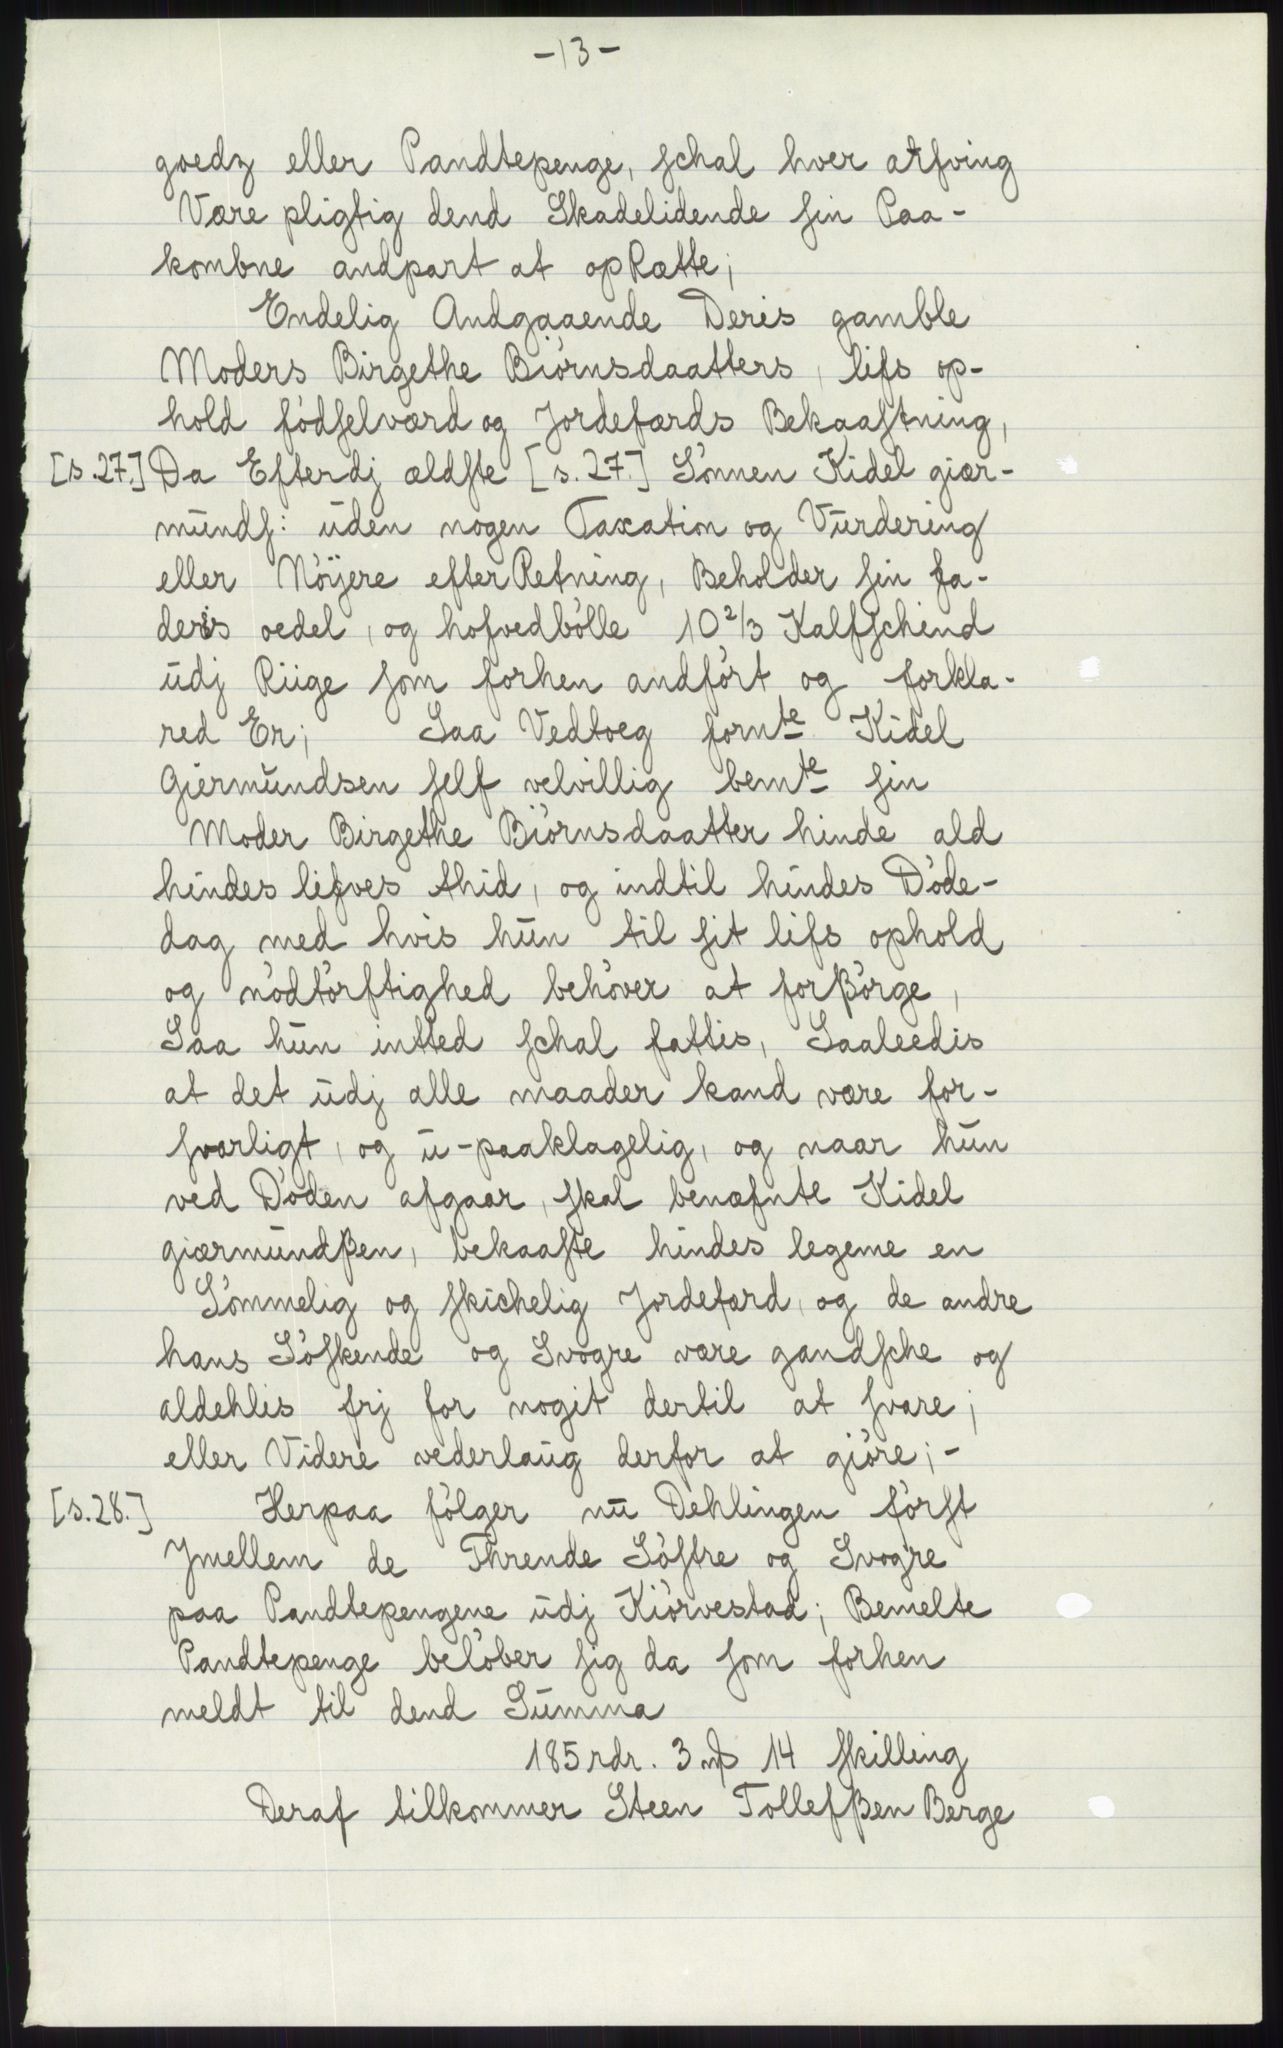 -13-
goedz eller Pandtepenge, schal hver arfving
Være pligtig dend Skadelidende sin Paa-
kombne andpart at opRætte;
Endelig Andgaaende Deris gamble
Moders Birgethe Biörnsdaatters, lifs op-
hold födselværd og Jordefærds Bekaastning,
[s.27.] Da Efterdj ældste [s. 27.] Sönnen Kidel giær-
munds: uden nogen Taxation og Vurdering
eller Nöÿere efterRetning, Beholder sin fa-
deris oedel, og hofvedbölle 10 2/3 Kalfschind
udj Riige som forhen andfört og forkla-
red Er; Saa Vedtoeg fornte Kidel
Giermundsen self velvillig bemte sin
Moder Birgethe Biörnsdaatter hinde ald
hindes lifves thid, og indtil hindes Döde-
dag med hvis hun til sit lifs ophold
og nödtörftighed behöver at forßörge,
Saa hun intted schal fattis, Saaleedis
at det udj alle maader kand være for-
svarligt, og u-paaklagelig, og naar hun
ved Döden afgaar, skal benæfnte Kidel
giærmundßen, bekaaste hindes legeme en
Sömmelig og skichelig Jordefærd, og de andre
hans Söskende og Svogre være gandsche og
aldehlis frj for nogit dertil at svare;
eller Videre vederlaug derfor at giöre;-
[s.28.] Herpaa fölger nu Dehlingen först
Jmellem de Thrende Söstre og Svogre
paa Pandtepengene udj Kiörvestad; Bemelte
Pandtepenge belöber sig da som forhen
meldt til dend Summa
185 rdr. 3 mß 14 skilling
Deraf tilkommer Steen Tollefßen Berge